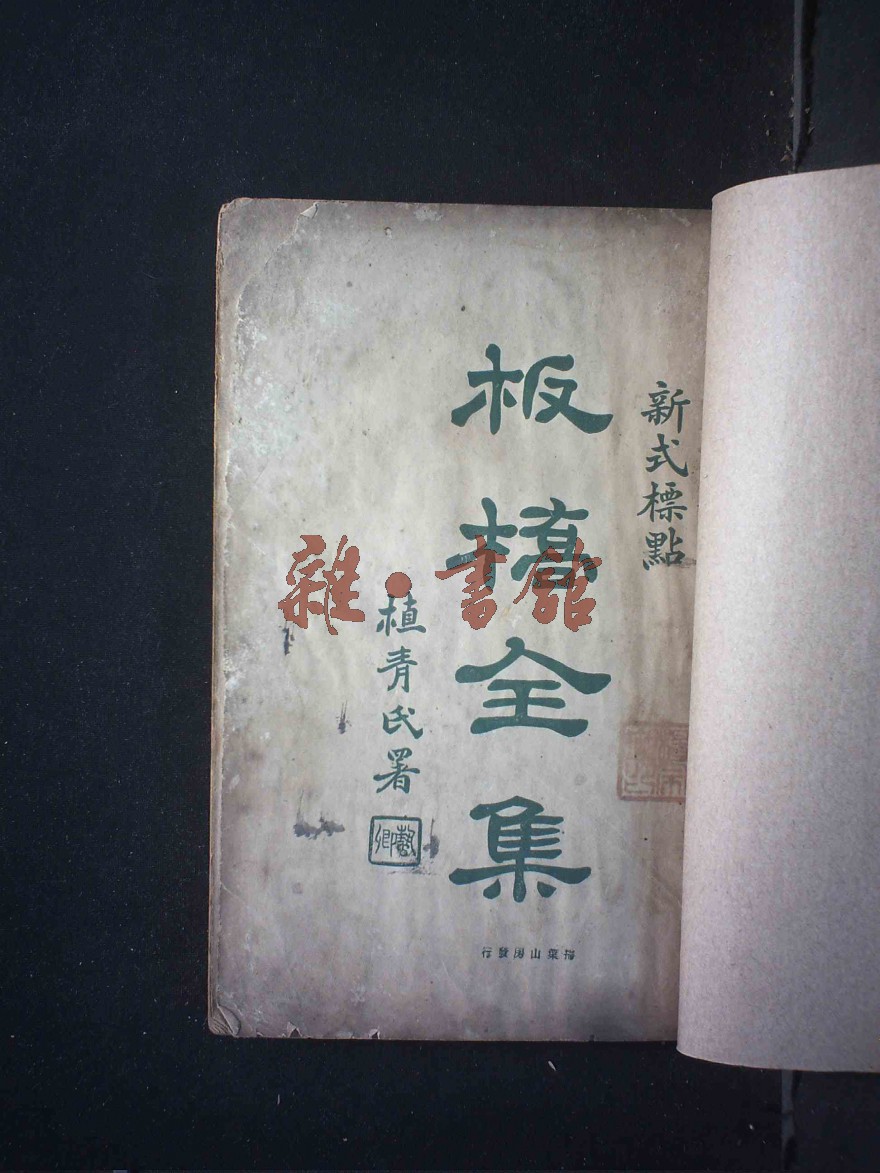 新式標點
板橋全集
植青氏署
掃葉山房發行
雜·書館